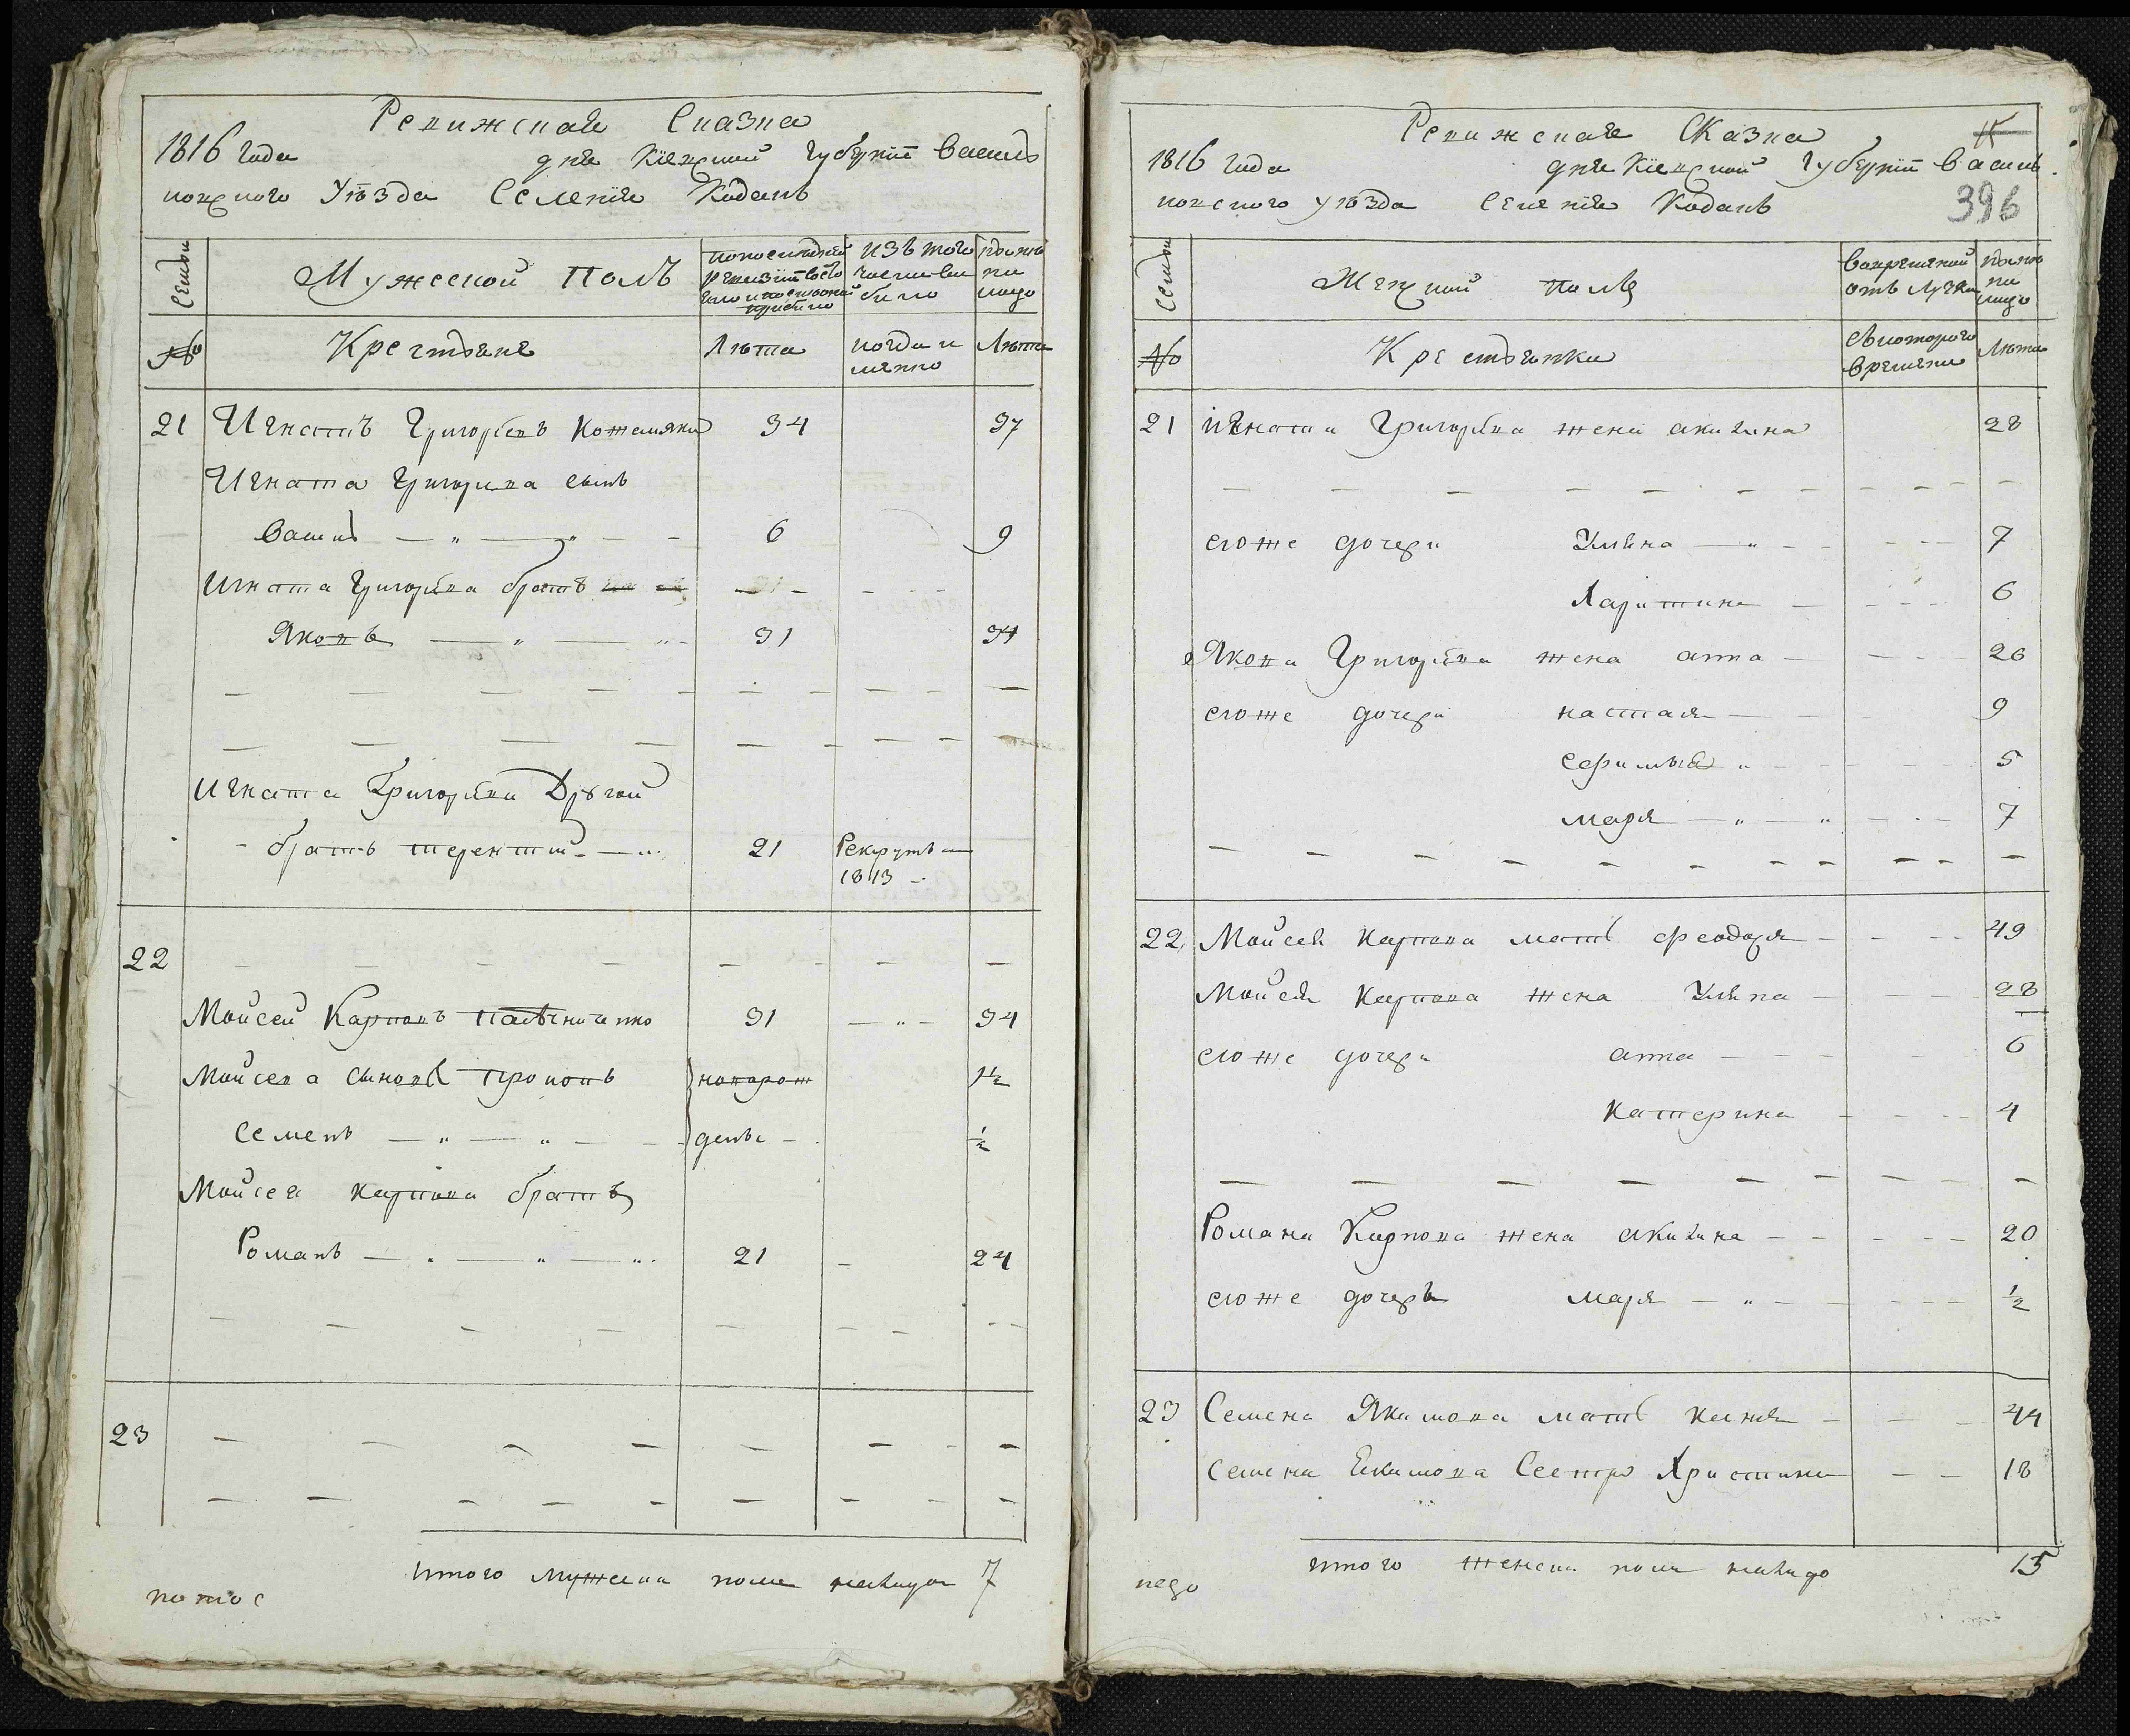 Ревижская Сказка
1816 года дня Кіевской губерніи Василь
ковского Уѣзда Селенія Кодакъ
Семьи
Мужеской Полъ
По последней ревизіи состо
яло и после оной прибыло
Изъ того числа вы
было
Нынѣ на лицо
№ Крестьяне Лѣта когда именно Лѣта
21 Игнатъ Григорьевъ Кожемяка 34 37
Игната Григорьева сынъ
Василь — " — " — — 6 9
Игната Григорьева братъ
Яковъ — " — " - 31 34
Игната Григорьева Другой
братъ терентий 21 Рекрутъ
1813
22
Мойсей Карповъ 31 — " — 34
Мойсея сыновья прокопъ новорож 1½
Семенъ — " — " — денные ½
Мойсея карпова братъ
Романъ — " — " — " 21 - 24
23
итого мужеска пола налицо 7
396
Ревижская Сказка
1816 года дня Кіевской Губерніи Василь
ковского уѣзда Селенія Кодакъ
Семьи
Женской полъ
Во временной отлучке
Нынѣ на лицо
№ Крестьянки Съ которого времени Лѣта
21 игната Григорьева жена акилина 28
егоже дочери Ульяна — " 7
Харитина 6
Якова Григорьева жена анна 26
егоже дочери настася 9
ефимья " 5
маря — " — " 7
22 Мойсея карпова мать феодоря 49
Мойсея карпова жена Ульяна 28
егоже дочери анна 6
катерина 4
Романа Карпова жена акилина 20
егоже дочеръ маря — " — ½
23 Семена Якимова мать 44
Семена Екимова Сестра Христина 18
итого женска пола налицо 15